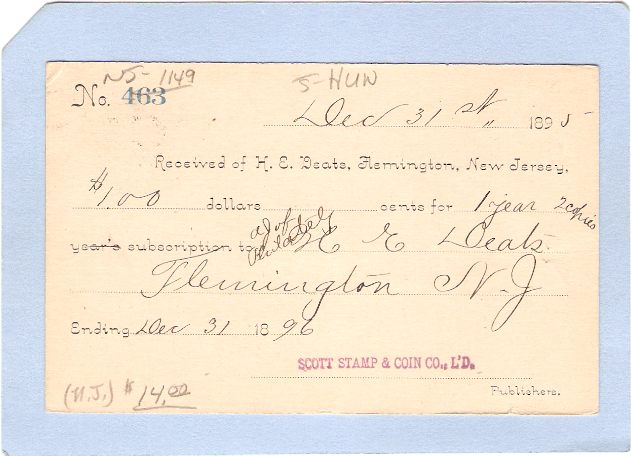 NJ-1149 5-HUN
No. 463
Dec 31 st 1895
Received of H. E. Deats, Flemington, New Jersey,
$1.00 dollars cents for 1 year 2 copies
year's subscription to H E Deats
Flemington N.J
Ending Dec 31 1896
SCOTT STAMP & COIN CO., L'D.
Publishers.
(N.J.) $14.00